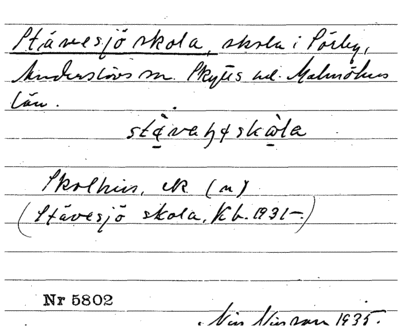 Stävesjö skola, skola i Pörby,
Anderslövs sn. Skytts hd. Malmöhus
län.
Skolhus, ek (n)
(Stävesjö skola, Kb. 1931-.)
Nr 5802
Nils Nilsson 1935.